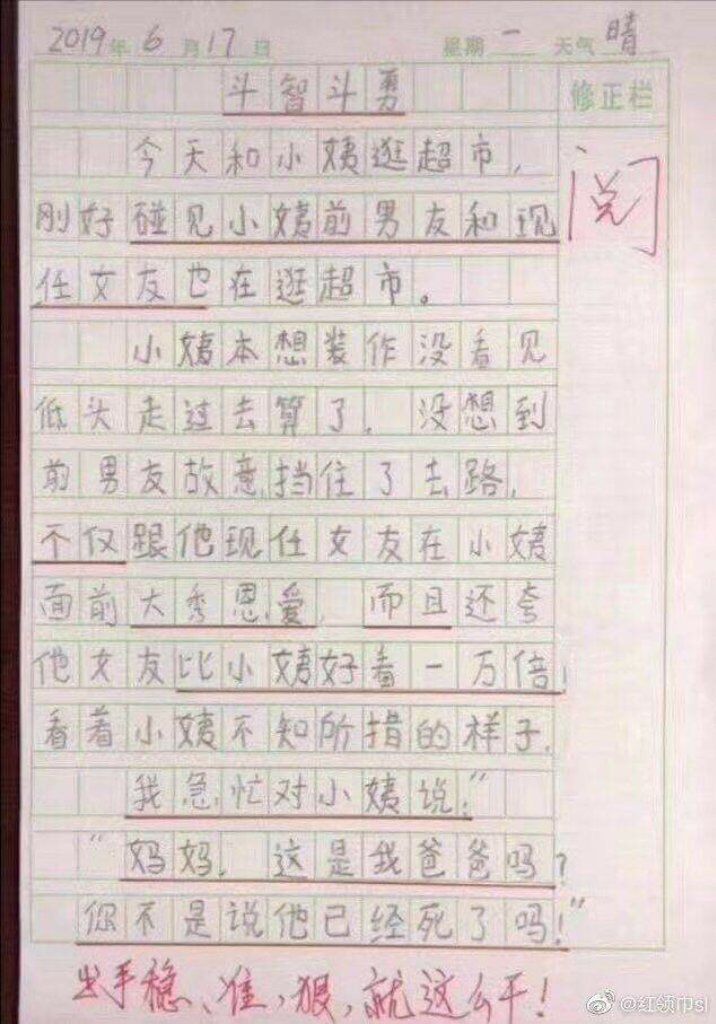 2019年6月17日 星期一 天气晴
斗智斗勇
修正栏
今天和小姨逛超市,
阅
刚好碰见小姨前男友和现
任女友也在逛超市。
小姨本想装作没看见
低头走过去算了,没想到
前男友故意挡住了去路,
不仅跟他现任女友在小姨
面前大秀恩爱,而且还夸
他女友比小姨好看一万倍!
看着小姨不知所措的样子,
我急忙对小姨说:"
"妈妈,这是我爸爸吗?
你不是说他已经死了吗!"
出手稳、准,狠,就这么干!
@红领巾sl